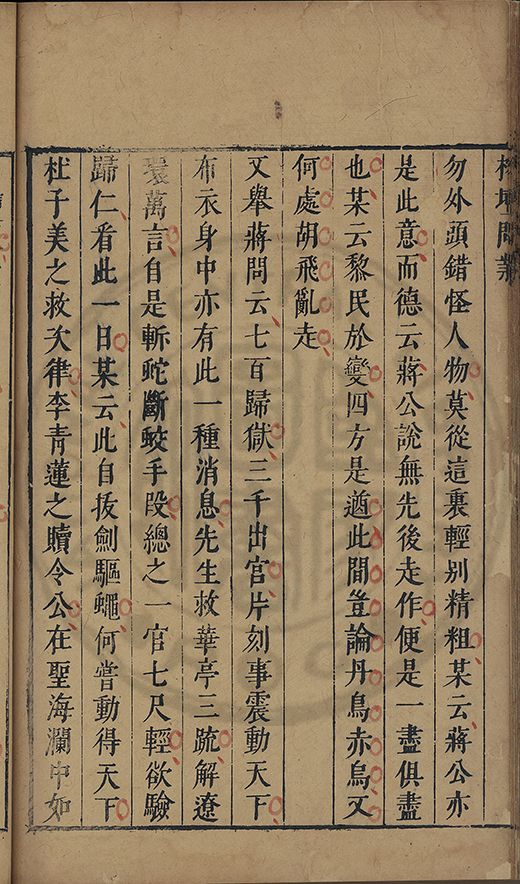 榕壇問業
勿外頭錯怪人物莫從這裏輕別精粗某云蔣公亦
是此意而德云蔣公說無先後走作便是一盡俱盡
也某云黎民於變四方是遒此間豈論丹鳥赤烏又
何處胡飛亂走
又舉蔣問云七百歸獄三千出官片刻事震動天下
布衣身中亦有此一種消息先生救華亭三疏解遼
環萬言自是斬蛇斷蛟手段總之一官七尺輕欲驗
歸仁看此一日某云此自拔劍驅蠅何嘗動得天下
杜子美之救次律李青蓮之贖令公在聖海瀾中如